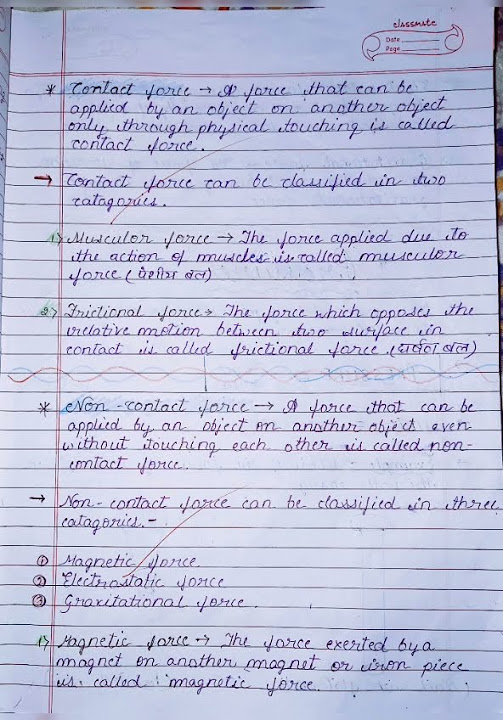 classmate
Date
Page
* Contact force → A force that can be
applied by an object on another object
only through physical touching is called
contact force.
→ Contact force can be classified in two
catagories.
1) Musculor force → The force applied due to
the action of muscles is called musculor
force (पेशीय बल)
2) Frictional force → The force which opposes the
relative motion between two surface in
contact is called frictional force (घर्षण बल)
* Non-contact force → A force that can be
applied by an object on another object even
without touching each other is called non-
contact force.
→ Non-contact force can be classified in three
catagories.-
① Magnetic force
② Electrostatic force
③ Gravitational force.
1) Magnetic force → The force exerted by a
magnet on another magnet or iron piece
is called magnetic force.